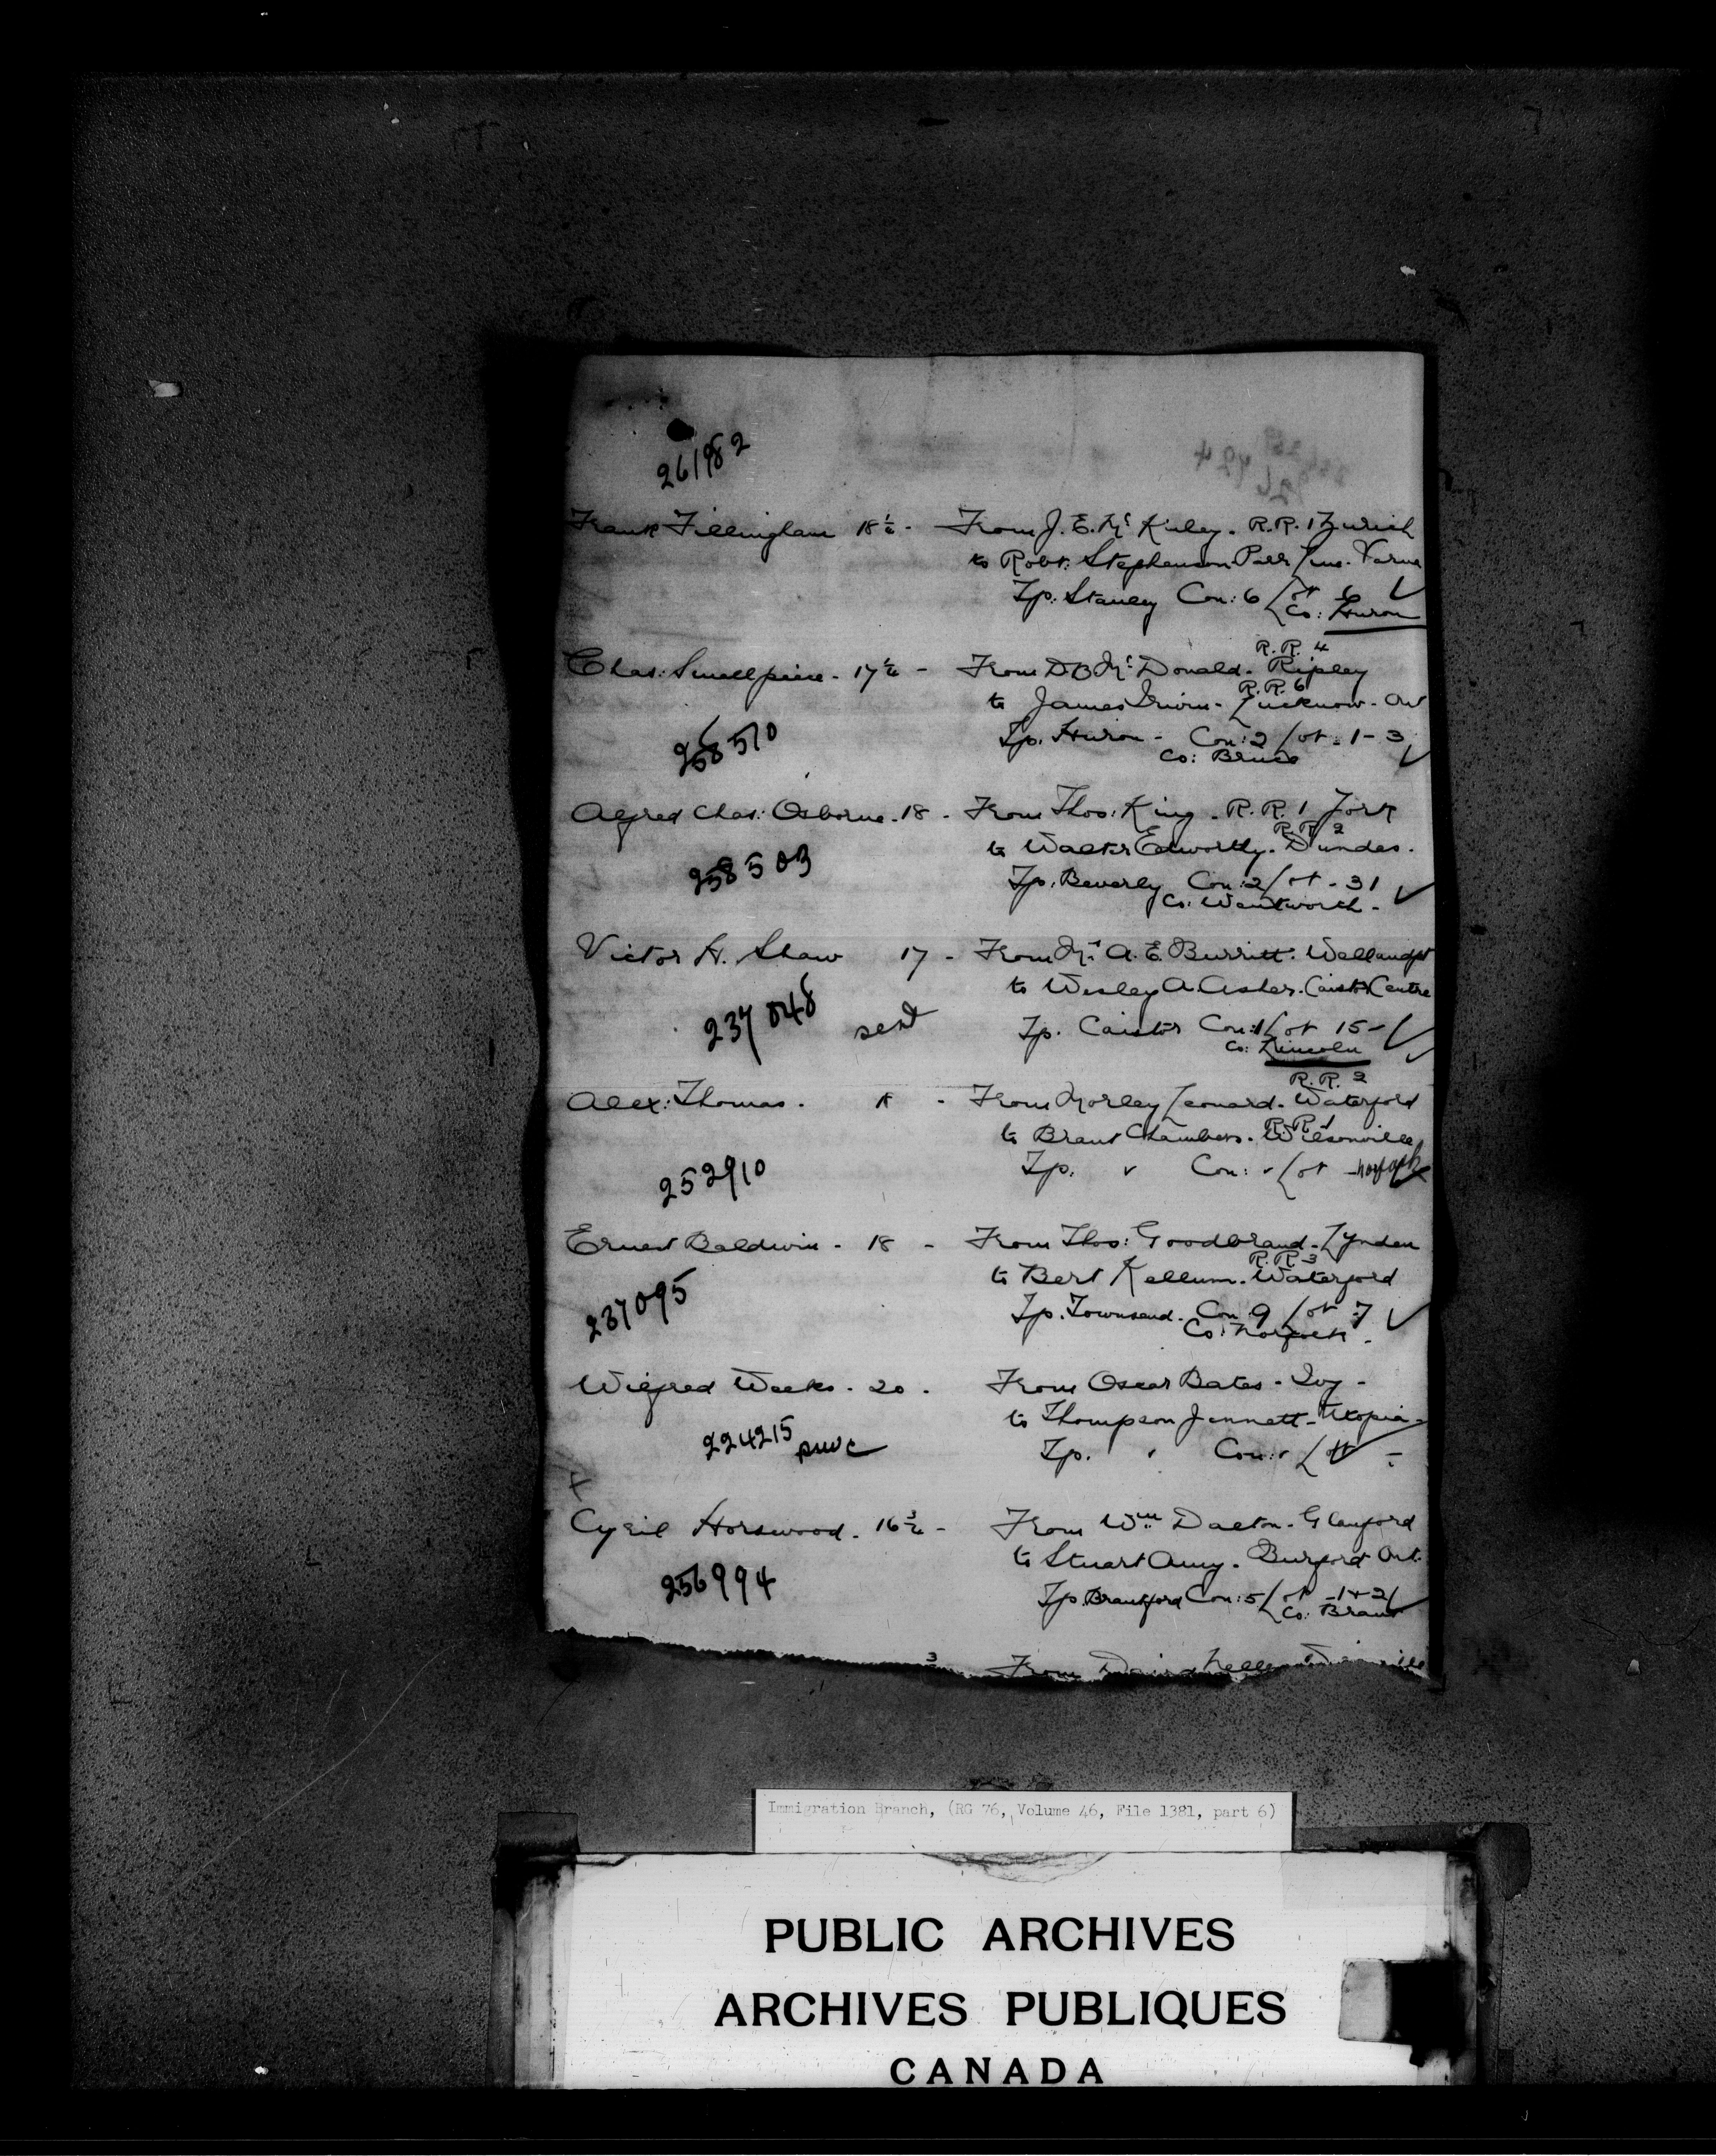 261982
Frank Fillingham 18½ - From J. E. Mc Kinley. R.R. 1 Zurich
to Robt. Stephenson Parr Line. Varna
Tp: Stanley Con: 6 Lot 6 ✓
Co: Huron
R.R. 4
Chas: Smallpiece - 17½ - From D B Mc Donald. Ripley
R.R. 6
to James Irwin - Lucknow - Ont
258570
Tp. Huron - Con: 2 Lot - 1-3 ✓
Co: Bruce
Alfred Chas: Osborne - 18 - From Thos: King. R.R. 1 York
R.R. 2
to Walter Edworthy. Dundas.
258503
Tp. Beverly Con: 2 Lot - 31 ✓
Co: Wentworth -
Victor H. Shaw 17 - From A. E. Burritt. Wellandpt
to Wesley A. Asher. Caistor Centre
237848 sent
Tp. Caistor Con: 1 Lot 15 - ✓
Co: Lincoln
R.R. 2
Alex: Thomas. - From Morley Leonard. Waterford
R.R. 1
to Brant Chambers. Wilsonville
Tp. Con: Lot - Norfolk
252910
Ernest Baldwin - 18 - From Thos: Goodbrand - Lynden
R.R. 3
to Bert Kellum. Waterford
237095
Tp. Townsend. Con: 9 Lot 7 ✓
Co: Norfolk.
Wilfred Weeks - 20 . From Oscar Bates - Ivy -
to Thompson Jennett - Utopia -
224215
Tp. Con: Lot -
Cyril Horswood - 16¾ - From Wm Dalton - Glanford
to Stuart Amy. Burford Ont.
256994
Tp. Brantford Con: 5 Lot - 1+2 ✓
Co: Brant
From
Immigration Branch, (RG 76, Volume 46, File 1381, part 6)
PUBLIC ARCHIVES
ARCHIVES PUBLIQUES
CANADA